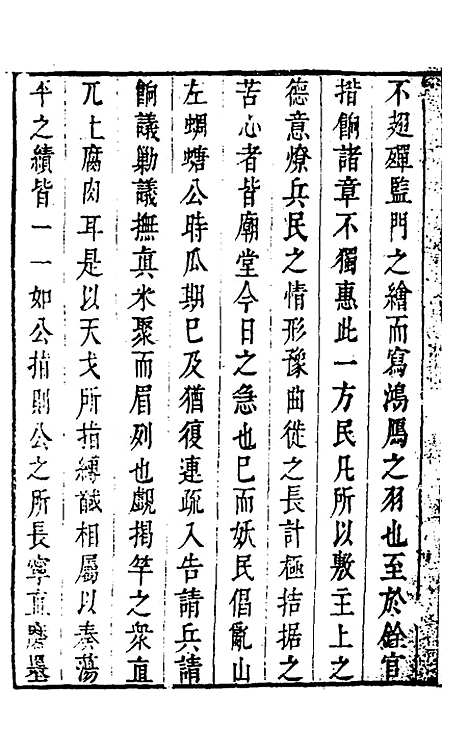 不趐殫監門之繪而寫鴻鴈之羽也至於銓官
措餉諸章不獨惠此一方民凡所以敷主上之
德意燎兵民之情形豫曲徙之長計極拮据之
苦心者皆廟堂今日之急也巳而妖民倡亂山
左蜩螗公時瓜期巳及猶復連疏入告請兵請
餉議勦議撫真米聚而眉列也覷揭竿之衆直
兀上腐肉耳是以天戈所指縛馘相屬以奏蕩
平之績皆一一如公指則公之所長寧直